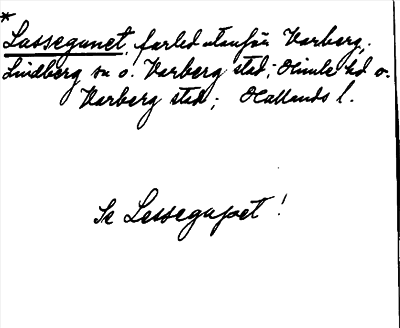 *
Lassegapet, farled utanför Varberg,
Lindberg sn o. Varberg stad; Himle hd o.
Varberg stad; Hallands l.
Se Lessegapet!